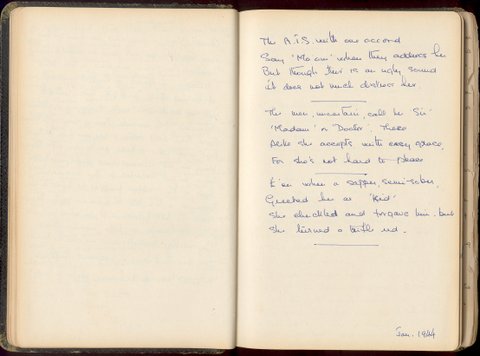 The A.T.S. with one accord
Say 'Ma'am' when they address her
But though this is an ugly sound
it does not much distress her.
The men, uncertain, call her 'Sir'
'Madam' or 'Doctor'. These
Alike she accepts with easy grace,
For she's not hard to please
E'en when a sapper, semi-sober,
Greeted her as 'Kid'
She chuckled and forgave him, but
She turned a little red.
Jan. 1944